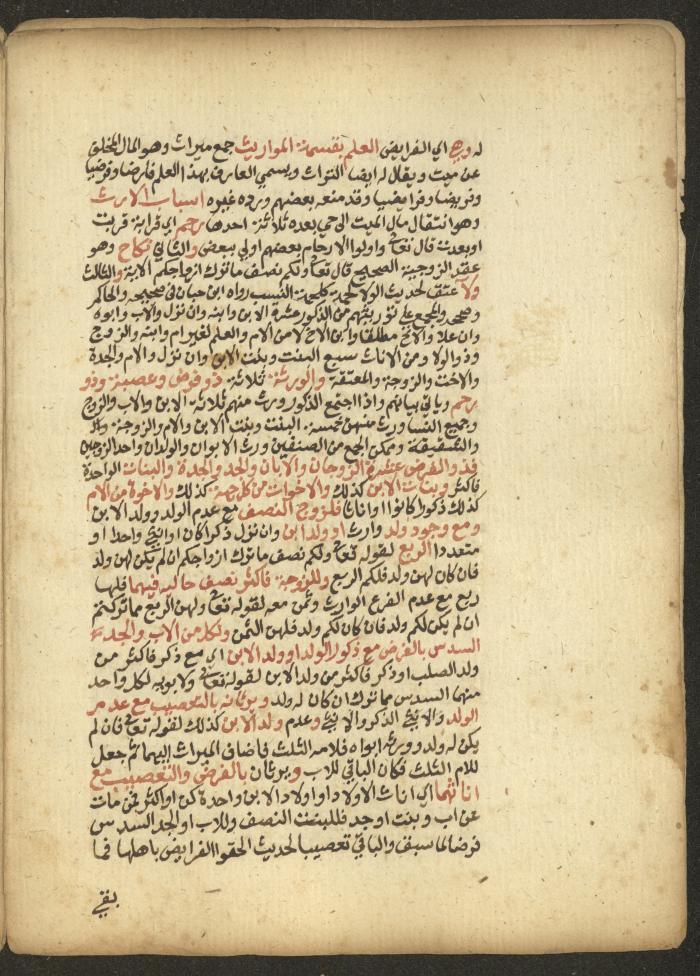 له وهي اي الفرايض العلم بقسمة المواريث جمع ميراث وهو المال المخلف
عن ميت ويقال له ايضا التراث ويسمي العارف بهذا العلم فارضا وفرضيا
وفريضا وفرايضيا وقد منعه بعضهم ورده غيره اسباب الارث
وهو انتقال مال الميت الي حي بعده ثلاثة احدها رحم اي قرابة قربت
او بعدت قال تعالى واولوا الارحام بعضهم اولي ببعض والثاني نكاح وهو
عقد الزوجية الصحيح قال تعالى ولكم نصف ما ترك ازواجكم الاية والثالث
ولا عتق لحديث الولا لحمة كلحمة النسب رواه ابن حبان في صحيحه والحاكم
وصححه والمجمع علي توريثهم من الذكور عشرة الابن وابنه وان نزل والاب وابوه
وان علا والاخ مطلقا وابن الاخ لا من الام والعم لغير ام وابنه والزوج
وذو الولا ومن الاناث سبع البنت وبنت الابن وان نزل والام والجدة
والاخت والزوجة والمعتقة والورثة ثلاثة ذو فرض وعصبة وذو
رحم وياتي بيانهم واذا اجتمع الذكور ورث منهم ثلاثة الابن والاب والزوج
وجميع النسا ورث منهن خمسة البنت وبنت الابن والام والزوجة
والشقيقة وممكن الجمع من الصنفين ورث الابوان والولدان واحد الزوجين
فذو الفرض عشرة الزوجان والابوان والجد والجدة والبنات الواحدة
فاكثر وبنات الابن كذلك والاخوات من كل جهة كذلك والاخوة من الام
كذلك ذكورا كانوا او اناثا فللزوج النصف مع عدم الولد وولد الابن
ومع وجود ولد وارث او ولد ابن وان نزل ذكرا كان او انثي واحدا او
متعددا الربع لقوله تعالى ولكم نصف ما ترك ازواجكم ان لم يكن لهن ولد
فان كان لهن ولد فلكم الربع وللزوجة فاكثر نصف حاليه فيهما فلها
ربع مع عدم الفرع الوارث وثمن معه لقوله تعالى ولهن الربع مما تركتم
ان لم يكن لكم ولد فان كان لكم ولد فلهن الثمن ولكل من الاب والجد
السدس بالفرض مع ذكور الولد او ولد الابن اي مع ذكر فاكثر من
ولد الصلب او ذكر فاكثر من ولد الابن لقوله تعالى ولابويه لكل واحد
منهما السدس مما ترك ان كان له ولد ويرثان بالتعصيب مع عدم
الولد والانثي الذكر والانثي وعدم ولد الابن كذلك لقوله تعالى فان لم
يكن له ولد وورثه ابواه فلامه الثلث فاضاف الميراث اليهما ثم جعل
للام الثلث فكان الباقي للاب ويرثان بالفرض والتعصيب مع
اناثهما اي اناث الاولاد او اولاد الابن واحدة كن او اكثر فمن مات
عن اب وبنت او جد فللبنت النصف وللاب او الجد السدس
فرضا لما سبق والباقي تعصيبا لحديث الحقوا الفرايض باهلها فما
بقي